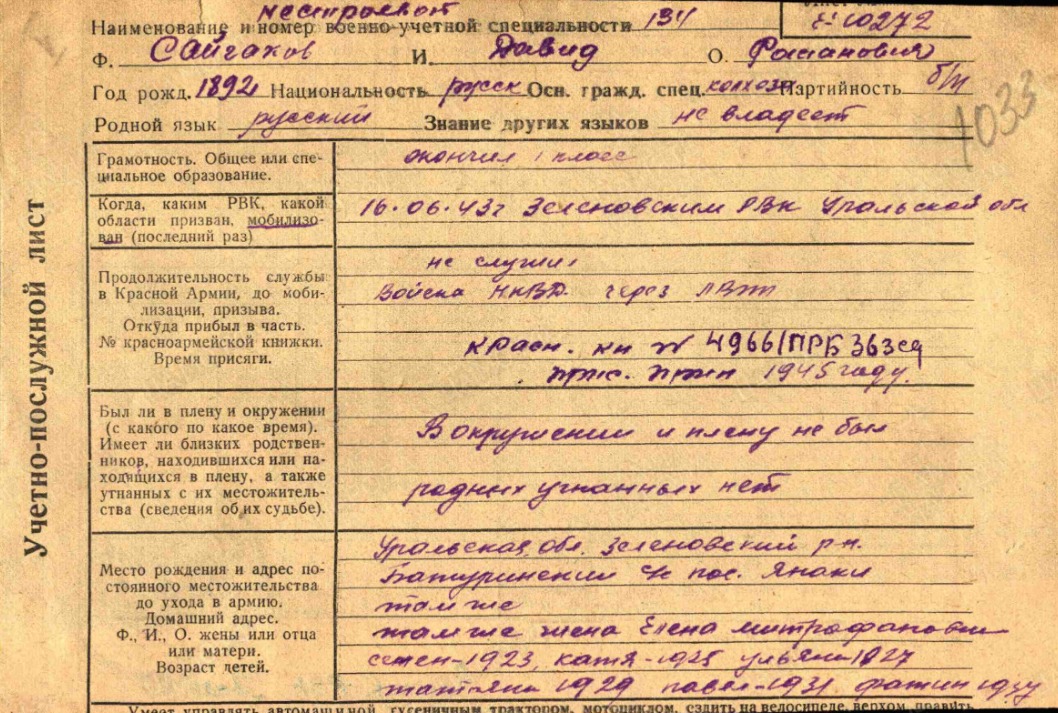 нестроевой
Наименование и номер военно-учетной специальности 134
10272
Ф. Сайгаков И. Давид О.
Год рожд. 1892 Национальность русск Осн. гражд. спец. колхоз Партийность б/п
1033
Родной язык русский Знание других языков не владеет
Учетно-послужной лист
Грамотность. Общее или спе-
циальное образование.
окончил 1 класс
Когда, каким РВК, какой
области призван, мобилизо-
ван (последний раз)
16.06.43г Зеленовским РВК Уральской обл
Продолжительность службы
в Красной Армии, до моби-
лизации, призыва.
Откуда прибыл в часть.
№ красноармейской книжки.
Время присяги.
не служил
Войска НКВД через
красн. кн № 4966/ПРБ 363сд
1945 году.
Был ли в плену и окружении
(с какого по какое время).
Имеет ли близких родствен-
ников, находившихся или на-
ходящихся в плену, а также
угнанных с их местожитель-
ства (сведения об их судьбе).
В окружении и плену не был
родных угнанных нет
Место рождения и адрес по-
стоянного местожительства
до ухода в армию.
Домашний адрес.
Ф., И., О. жены или отца
или матери.
Возраст детей.
Уральская обл. Зеленовский р-н.
Батуринский пос. Янаки
там же
там же жена Елена Митрофановна
семен-1923, катя-1925 ульяна 1927
татьяна 1929 павел-1931
Умеет управлять автомашиной, гусеничным трактором, мотоциклом, ездить на велосипеде, верхом, править